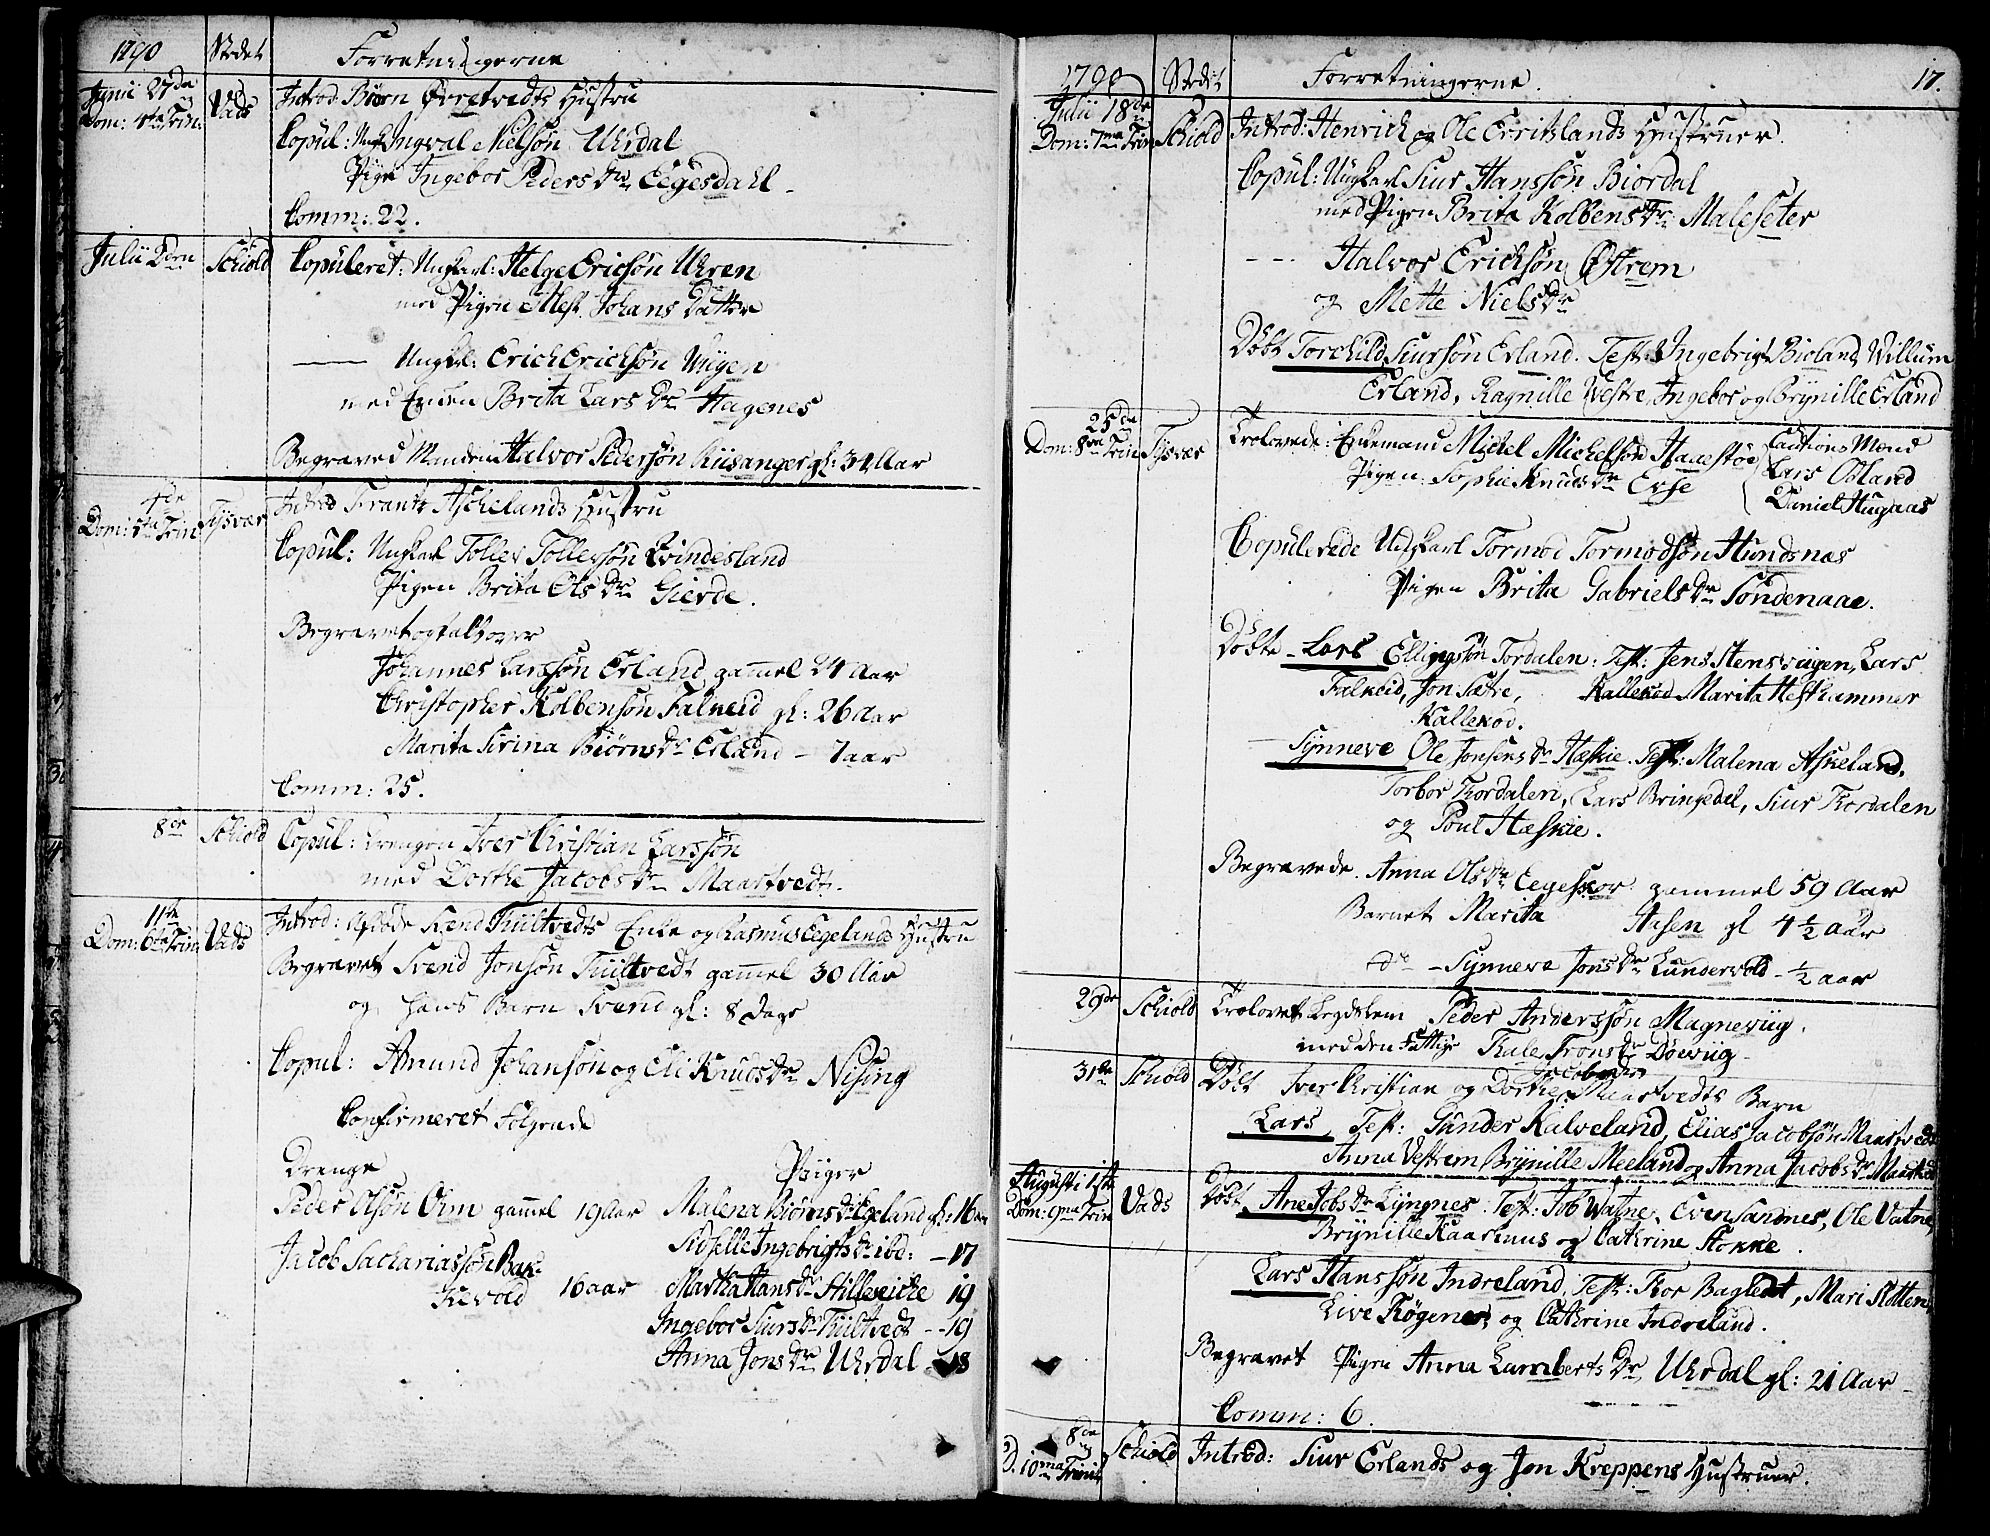 1790 Stedet Forretningerne
Junii 27de Dom: 4ta Trin: Vads Introd: Biørn Øvretvedts Hustru
Copul: Ungk. Ingval Nielsøn Uhrdal
Pigen Ingebor Peders Dr Eegesdahl
Comm: 22.
Julii 2den Schiold Copuleret: Ungkarl: Helge Ericsøn Uhren
med Pigen Johans Datter
Ungkl: Erich Erichsøn Wiigen
med Enken Brita Lars Dr Hagenes
Begraved Manden Halvor Pedersøn Riisanger gl: 34 Aar
4de Dom: 5ta Trin Tysvær Introd Frantz Aschelands Hustru
Copul: Ungkarl Tollev Tollefsøn Qvindesland
Pigen Brita Ols Dr Gierde.
Begravet og kast over
Johannes Larssøn Erland gammel 24 Aar
Christopher Kolbensøn Falneid gl: 26 Aar
Marita Sirina Biørns Dr Erland - 7 aar
Comm: 25.
8de Schiold Copul: Drengen Iver Christian Larssøn
med Dorthe Jacobs Dr Maartvedt.
11te Dom: 6ta Trin: Vads Introd: Afdøde Svend Tuiltvedts Enke og Rasmus Eegelands Hustru
Begravet Svend Jonsøn Tuiltvedt gammel 30 Aar
og hans Barn Svend gl: 8 dage
Copul: Amund Johansøn og Eli Knuds Dr Nising
Confirmeret Følgende
Drenge Piiger
Peder Olsøn Ølm gammel 19 Aar Malena Biørns Dr Egeland gl: 16 aar
Sidselle Ingebrigts Dr ibd: - 17
Jacob Sachariassøn Bak-
kevold 16 aar Martha Hans Dr Hillevicke 19
Ingebor Siurs Dr Tuiltvedt - 19
Anna Jons Dr Uhrdal - 18
1790 Stedet Forretningerne. 17.
Julii 18de Dom: 7ma Trin Schiold Introd: Henrich og Ole Erritslands Hustruer.
Copul: Ungkarl Siur Hanssøn Biordal
med Pigen Brita Kolbens Dr Maleseter
Halvor Erichsøn Østrem
og Mette Niels Dr
Døbt Torchild Siursøn Erland. Test: Ingebrigt Bioland, Willum
Erland, Ragnille Vestre, Ingebor og Brynille Erland
25de Dom: 8va Trin Tysvær Trolovede: Enkemand Mickel Michelsøn Haaestøe Cautions Mænd
Pigen: Sophie Knuds Dr Erse Lars Østand
Daniel Hugaas
Copulerede Ungkarl Tormod Tormodsøn Hundsnæs
Pigen Brita Gabriels Dr Søndenaae.
Døbte - Lars Ellingsøn Tordalen: Test: Jens Stensviigen, Lars
Falneid, Jon Sætre, Kallekod Marita Hesthammer
Kallekod.
Synneve Ole Jonsens Dr Hæskie. Test: Malena Askeland,
Torbor Tordalen, Lars Bringedal, Siur Tordalen
og Poul Hæskie.
Begravede. Anna Ols Dr Eegeskor gammel 59 Aar
Barnet Marita Aasen gl 4 1/2 aar
do - Synneve Jons Dr Lundervold - 1/2 aar
29de Schiold Trolovet Legdslem Peder Anderssøn Magneviig.
med den Fattige Kale Trons Dr Døeviig
31te Schiold Døbt Iver Christian og Dorthe Jacobsdr Maartvedts Barn
Lars, Test: Gunder Kalveland, Elias Jacobsøn Maartvedt
Anna Vestrem Brynille Meeland og Anna Jacobs Dr Maartved
Augusti 1ste Dom: 9na Trin Vads Døbt Ane Jobs Dr Lyngnes. Test: Job Watne, Even Sandnes, Ole Vatne,
Brynille Kaarhuus og Cathrine Stokke.
Lars Hanssøn Indreland, Test: Tor Bagledt, Mari Slotten,
Live Røgenes, og Cathrine Indreland.
Begravet Pigen Anna Lamberts Dr Uhrdal gl: 21 Aar
Comm: 6.
8de D. 10ma Trinit Schiold Introd: Siur Erlands og Jon Kreppens Hustruer.